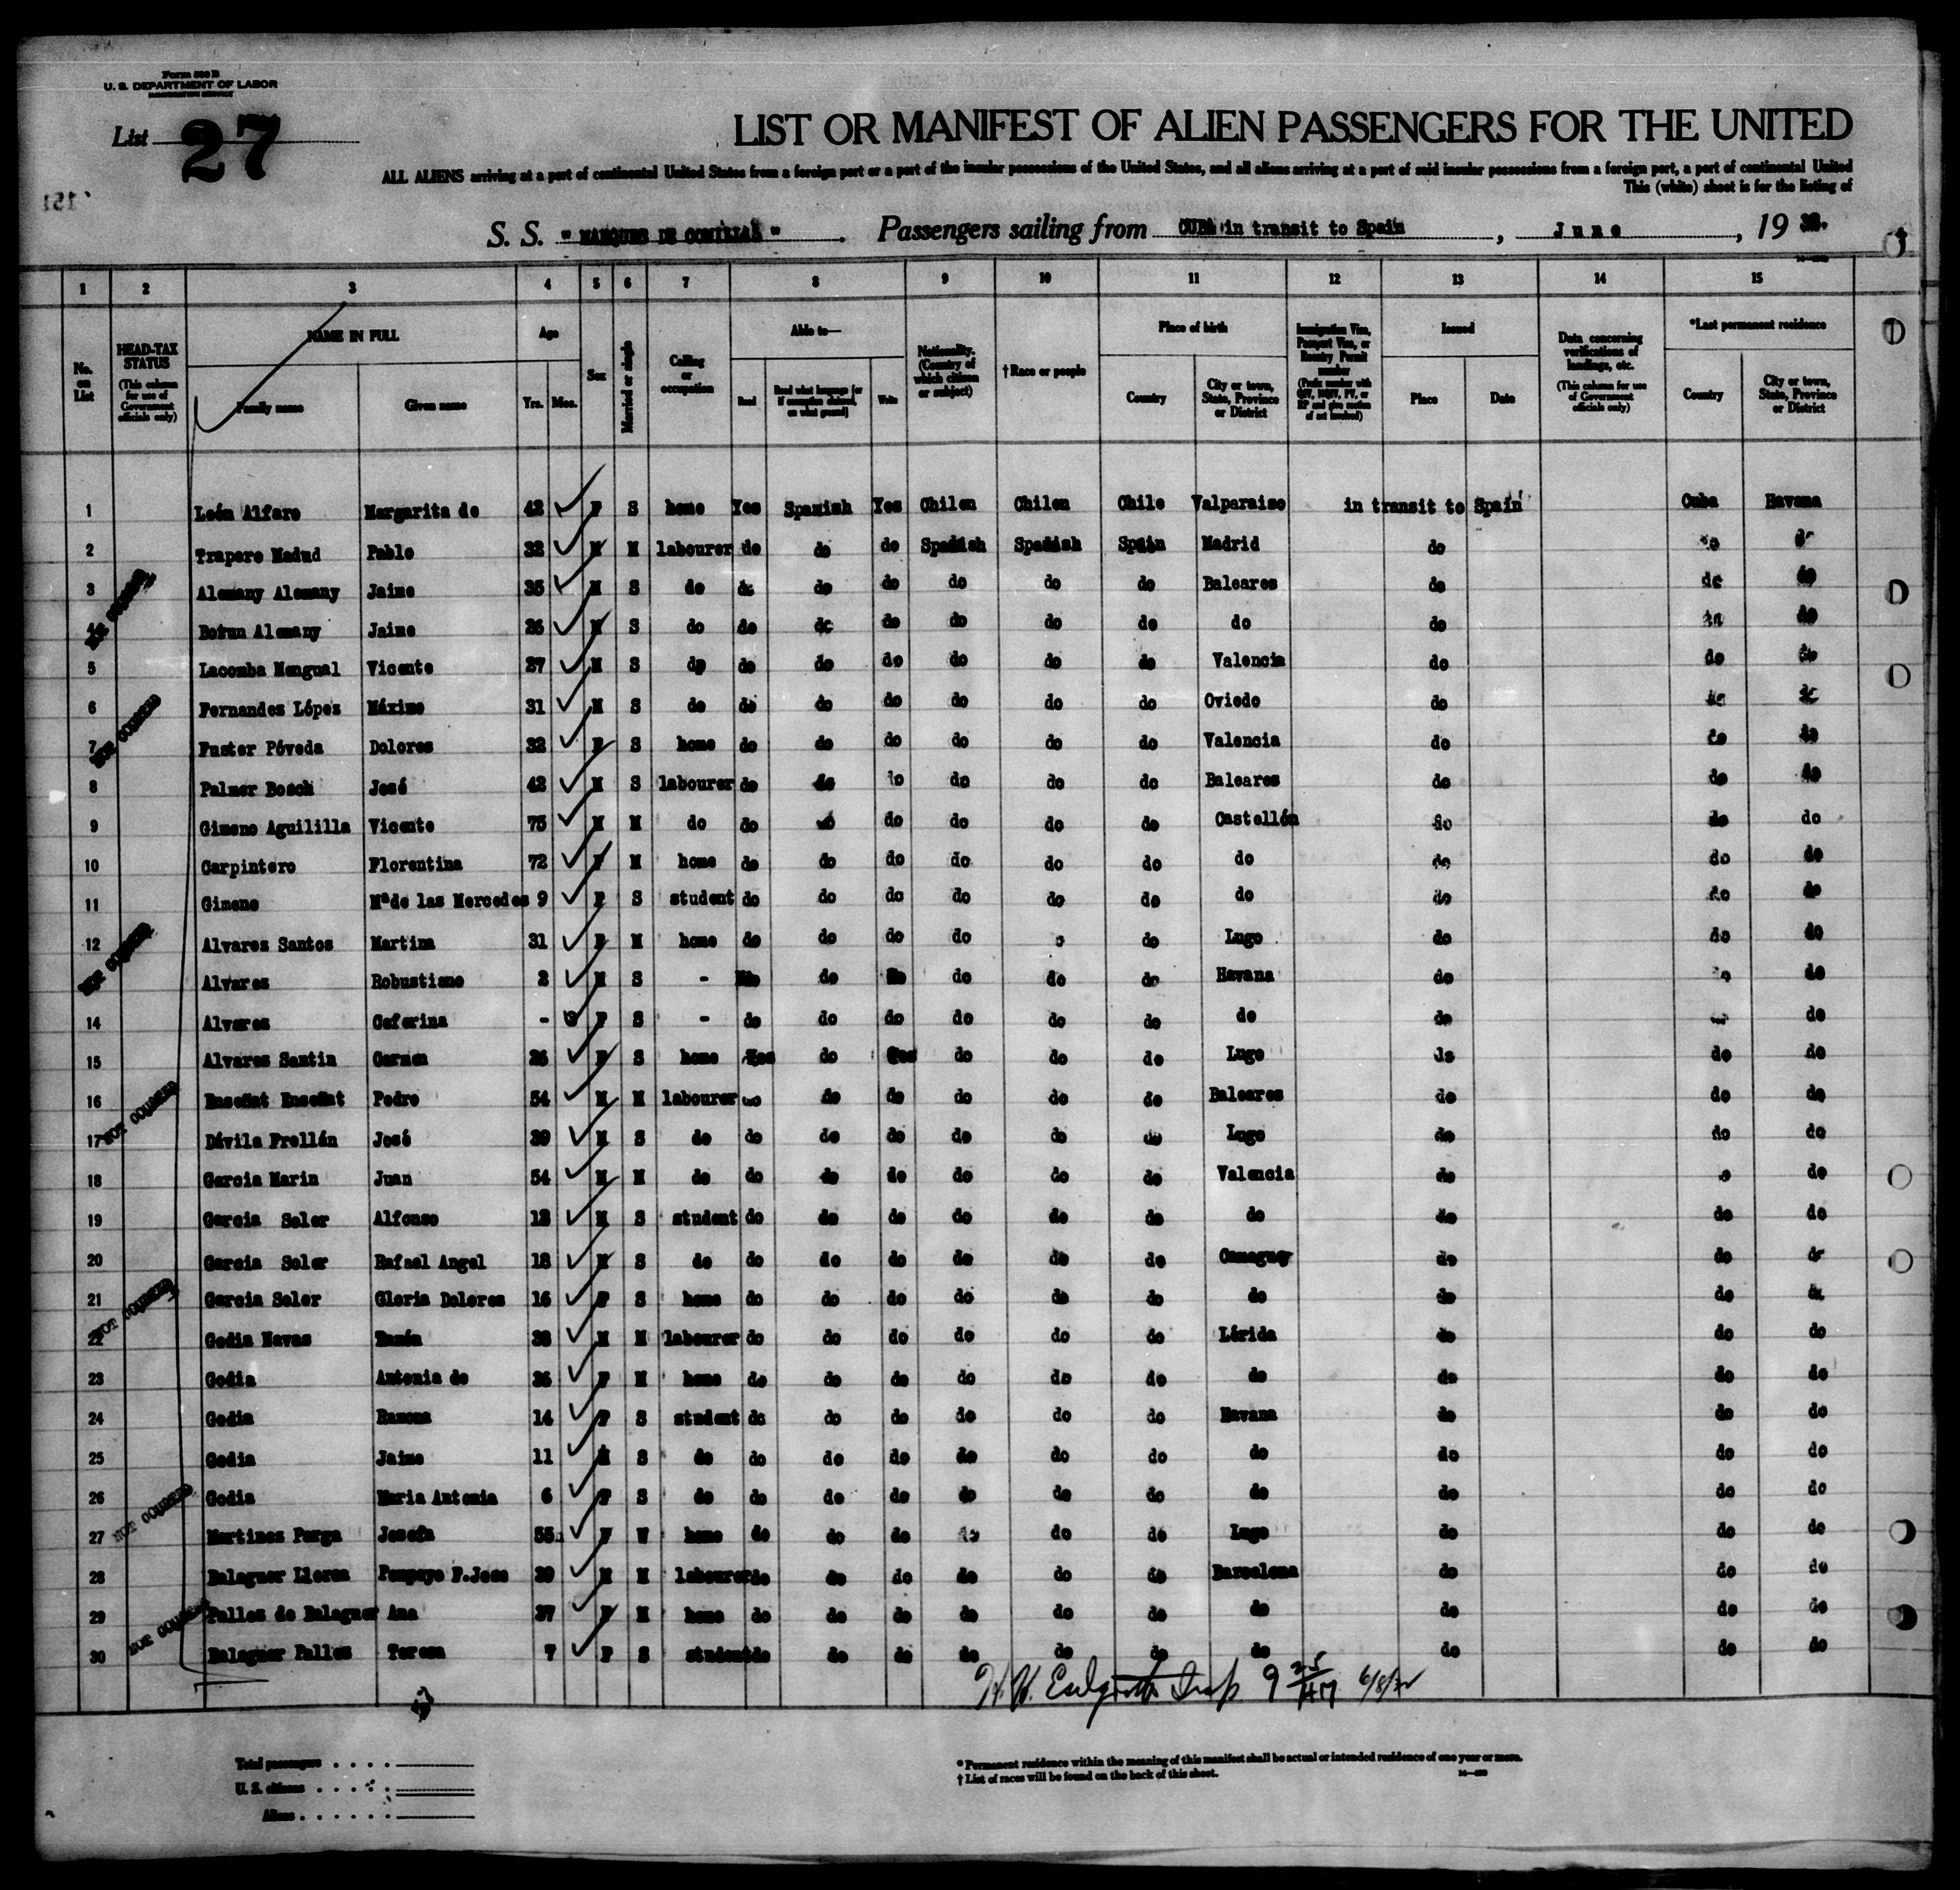 Form 500 B
U. S. DEPARTMENT OF LABOR
IMMIGRATION SERVICE
List 27
LIST OR MANIFEST OF ALIEN PASSENGERS FOR THE UNITED
ALL ALIENS arriving at a port of continental United States from a foreign port or a port of the insular possessions of the United States, and all aliens arriving at a port of said insular possessions from a foreign port, a port of continental United
This (white) sheet is for the listing of
S. S. " MARQUES DE COMILLAS " . Passengers sailing from CUBA in transit to Spain , June , 19 32.
1 2 3 4 5 6 7 8 9 10 11 12 13 14 15
No. on List
HEAD-TAX STATUS (This column for use of Government officials only)
NAME IN FULL Family name Given name
Age Yrs. Mos.
Sex
Married or single
Calling or occupation
Able to— Read Read what language [or if exemption claimed, on what ground] Write
Nationality. (Country of which citizen or subject)
†Race or people
Place of birth Country City or town, State, Province or District
Immigration Visa, Passport Visa, or Reentry Permit number (Prefix number with QIV, NQIV, PV, or RP and give section of act involved)
Issued Place Date
Data concerning verifications of landings, etc. (This column for use of Government officials only)
*Last permanent residence Country City or town, State, Province or District
1 León Alfaro Margarita de 42 F S home Yes Spanish Yes Chilen Chilen Chile Valparaiso in transit to Spain Cuba Havana
2 Trapero Madud Pablo 32 M M labourer do do do Spanish Spanish Spain Madrid do do do
3 Alemany Alemany Jaime 35 M S do do do do do do do Baleares do do do
4 Alemany Jaime 26 M S do do do do do do do do do do do
5 Lacomba Mengual Vicente 27 M S do do do do do do do Valencia do do do
6 Fernandes López Máximo 31 M S do do do do do do do Oviedo do do do
7 Fuster Póveda Dolores 32 F S home do do do do do do Valencia do do do
8 Palmer Bosch José 42 M S labourer do do do do do do Baleares do do do
9 Gimeno Aguililla Vicente 75 M M do do do do do do do Castellón do do do
10 Carpintero Florentina 72 F M home do do do do do do do do do do
11 Gimeno Mªde las Mercedes 9 F S student do do do do do do do do do do
12 Alvares Santos Martina 31 F M home do do do do do do Lugo do do do
Alvares Robustiano 2 M S - No do No do do do Havana do do do
14 Alvares Ceferina - F S - do do do do do do do do do do
15 Alvares Santin Carmen 26 F S home Yes do Yes do do do Lugo do do do
16 Enseñat Enseñat Pedro 54 M M labourer do do do do do do Baleares do do do
17 Dávila Frellán José 39 M S do do do do do do do Lugo do do do
18 Garcia Marin Juan 54 M M do do do do do do do Valencia do do do
19 Garcia Soler Alfonso M S student do do do do do do do do do do
20 Garcia Soler Rafael Angel 18 M S do do do do do do do Camaguey do do do
21 Garcia Soler Gloria Dolores 16 F S home do do do do do do do do do do
22 Godia Navas Ramón 38 M M labourer do do do do do do Lérida do do do
23 Godia Antonia de 36 F M home do do do do do do do do do do
24 Godia Ramona 14 F S student do do do do do do Havana do do do
25 Godia Jaime 11 M S do do do do do do do do do do do
26 Godia Maria Antonia 6 F S do do do do do do do do do do do
27 Martines Parga Josefa 55 F W home do do do do do do Lugo do do do
28 Balaguer Llorca Pompeyo F.Jose 39 M M labourer do do do do do do Barcelona do do do
29 Palles de Balaguer Ana 37 F M home do do do do do do do do do do
30 Balaguer Palles Teresa 7 F S student do do do do do do do do do do
NOT COUNTED
NOT COUNTED
NOT COUNTED
NOT COUNTED
NOT COUNTED
NOT COUNTED
NOT COUNTED
Insp 9 25/47 6/8/32
Total passengers
U. S. citizens
Aliens
* Permanent residence within the meaning of this manifest shall be actual or intended residence of one year or more.
† List of races will be found on the back of this sheet.